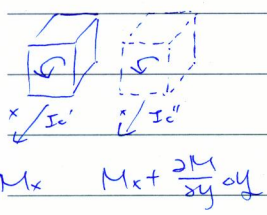 x Ic' x Ic"
Mx Mx + ∂M/∂y ∂y